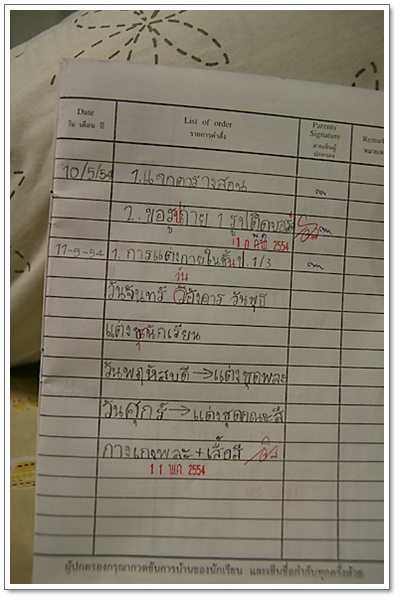 Date List of order Parents Signature Remark
วัน เดือน ปี รายการคำสั่ง ลายเซ็นผู้ปกครอง หมายเหตุ
10/5/54 1. แจกตารางสอน
2. ขอรูปถ่าย 1 รูปติดบอร์ด
10 พ.ค. 2554
11-5-54 1. การแต่งกายในชั้นป. 1/3
วัน
วันจันทร์ วิอังคาร วันพุธ
แต่งชุนักเรียน
วันพฤหัสบดี → แต่งชุดพละ
วันศุกร์ → แต่งชุดคณะสี
กางเกงพละ + เสื้อสี
11 พ.ค. 2554
ผู้ปกครองกรุณากวดขันการบ้านของนักเรียน และเซ็นชื่อกำกับทุกครั้งด้วย